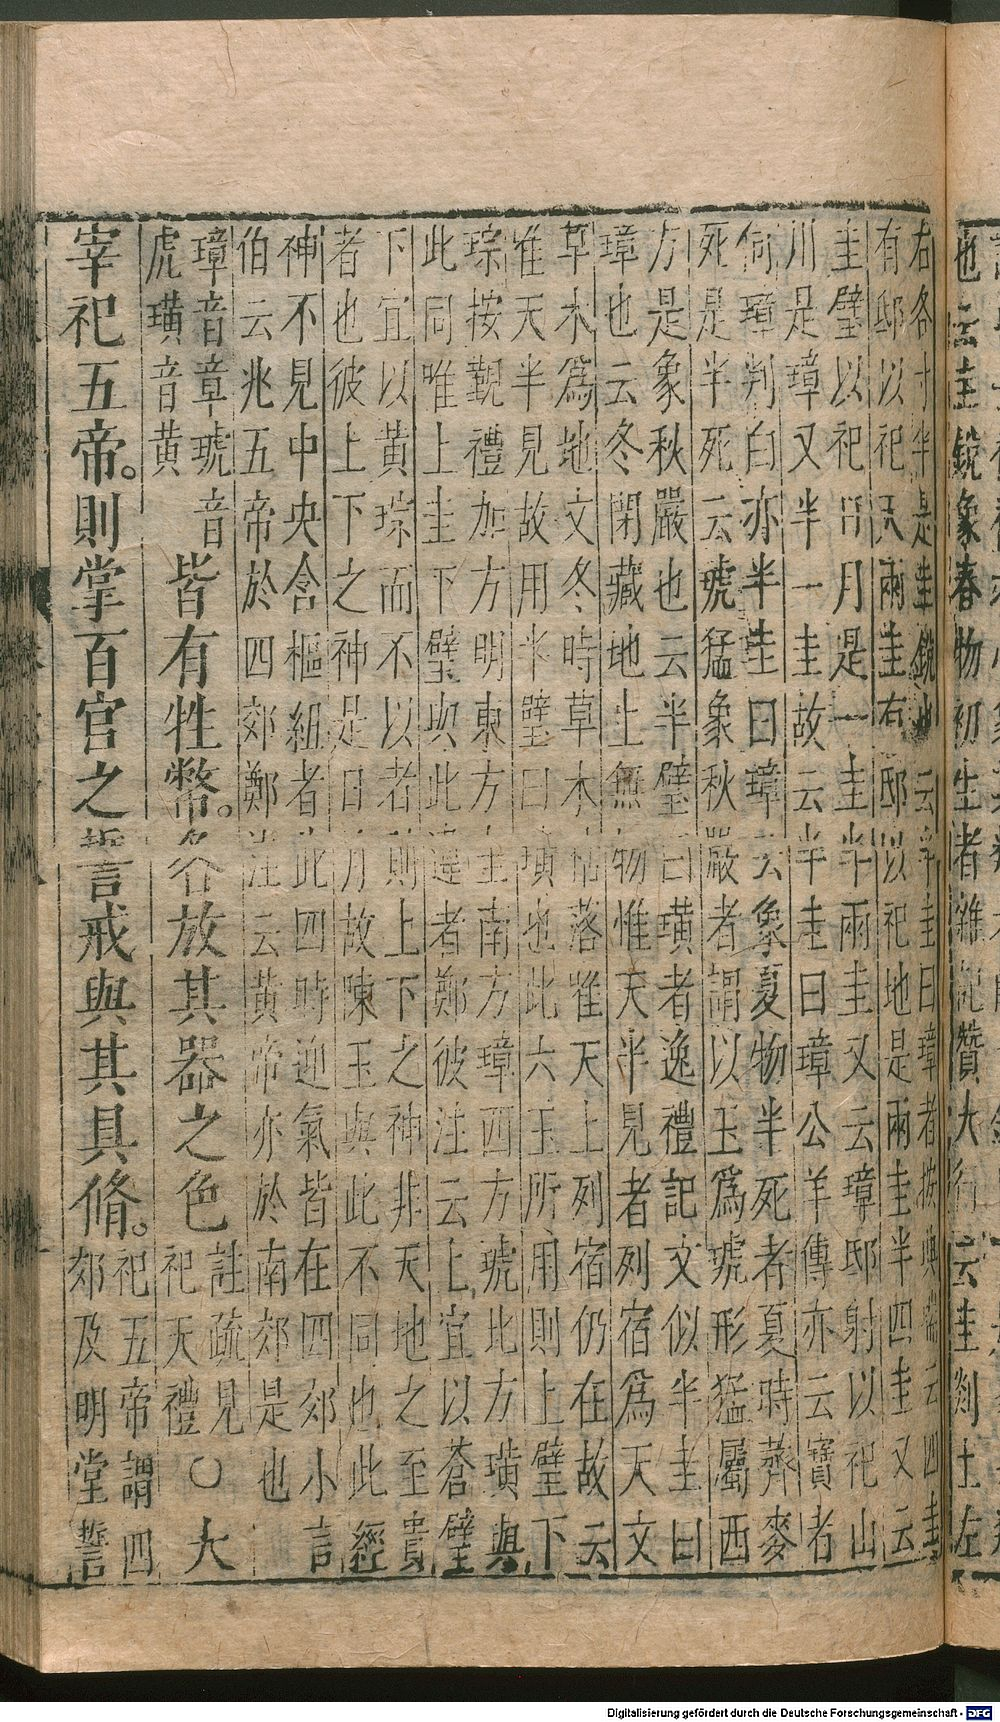 也云圭銳象春物初生者雜記贊大行云圭剡上左
右各寸半是圭銳也云半圭曰璋者按典瑞云四圭
有邸以祀天兩圭有邸以祀地是兩圭半四圭又云
圭璧以祀日月是一圭半兩圭又云璋邸射以祀山
川是璋又半一圭故云半圭曰璋公羊傳亦云寳者
何璋判白亦半圭曰璋云象夏物半死者夏時薺麥
死是半死云琥猛象秋嚴者謂以玉爲琥形猛屬西
方是象秋嚴也云半璧曰璜者逸禮記文似半圭曰
璋也云冬閉藏地上無物惟天半見者列宿爲天文
草木爲地文冬時草木枯落惟天上列宿仍在故云
惟天半見故用半璧曰璜也此六玉所用則上璧下
琮按覲禮加方明東方圭南方璋西方琥北方璜與
此同唯上圭下璧與此違者鄭彼注云上宜以蒼璧
下宜以黃琮而不以者則上下之神非天地之至貴
者也彼上下之神是日月故陳玉與此不同也此經
神不見中央含樞紐者此四時迎氣皆在四郊小言
伯云兆五帝於四郊鄭注云黃帝亦於南郊是也
璋音章琥音
虎璜音黃
皆有牲幣。各放其器之色
註疏見
祀天禮
〇大
宰祀五帝。則掌百官之誓戒與其具脩。
祀五帝謂四
郊及明堂誓
Digitalisierung gefördert durch die Deutsche Forschungsgemeinschaft - DFG